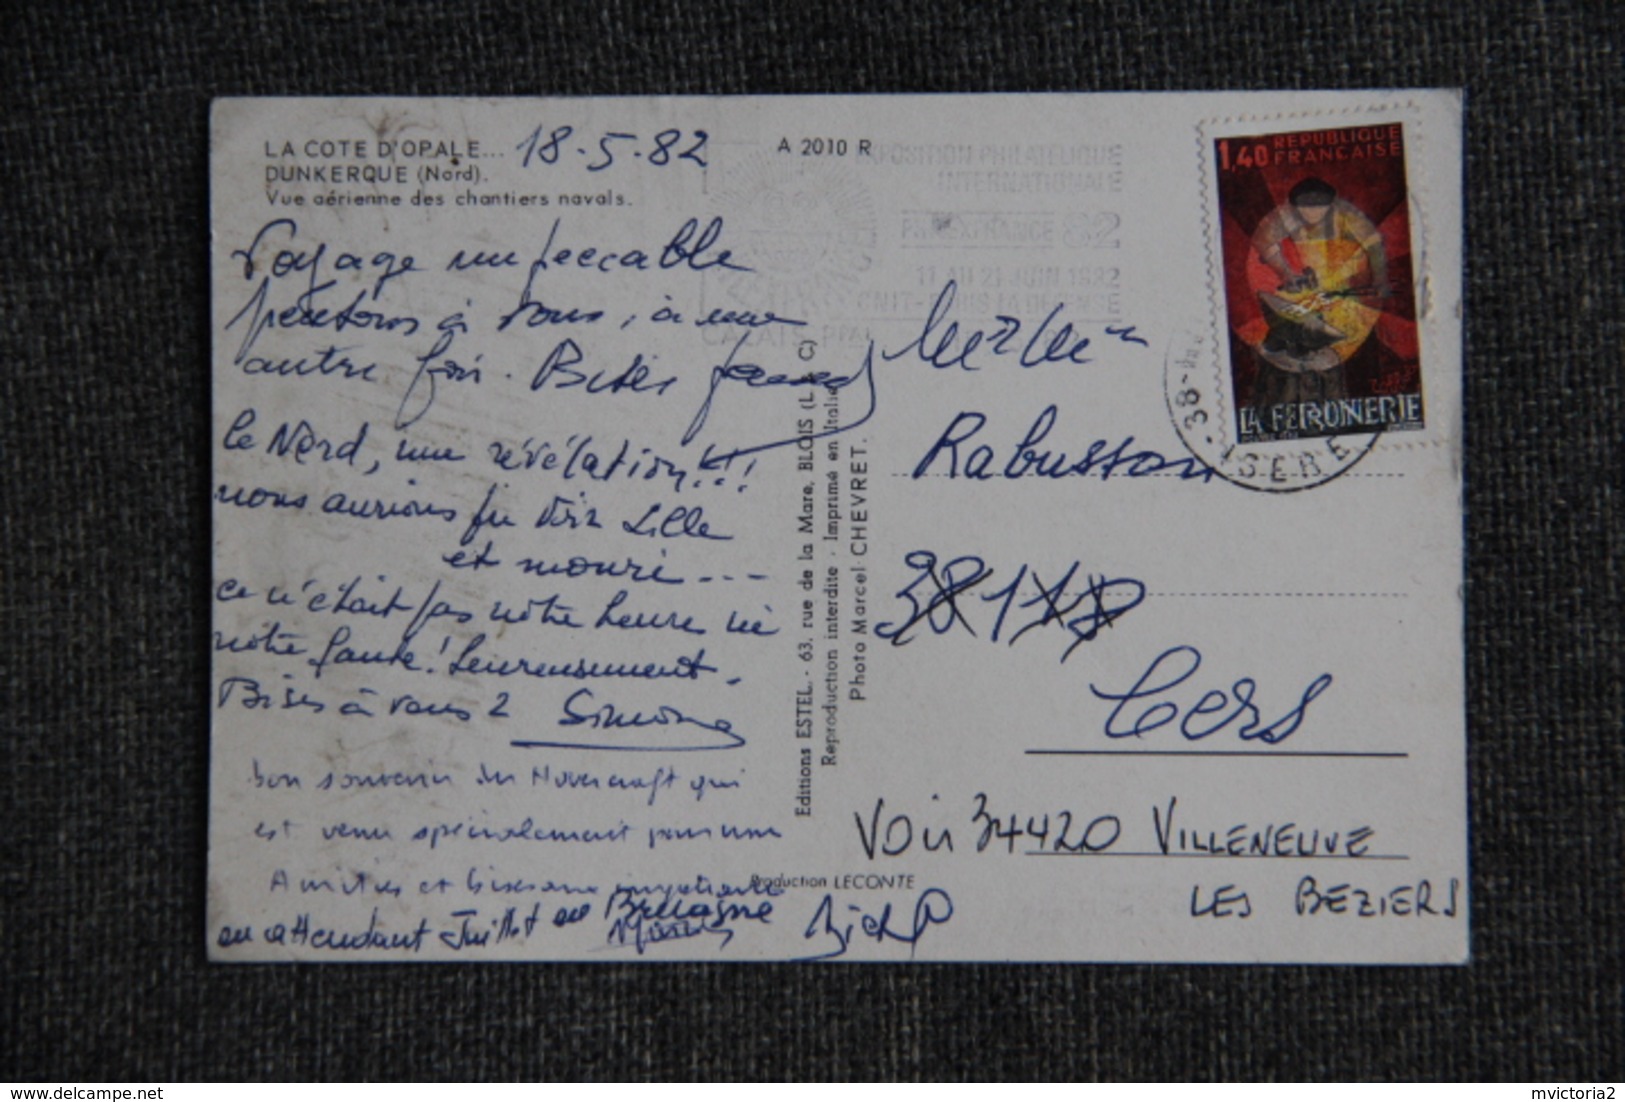 LA COTE D'OPALE...
DUNKERQUE (Nord).
Vue aérienne des chantiers navals.
18-5-82
A 2010 R
EXPOSITION PHILATÉLIQUE
INTERNATIONALE
PHILEXFRANCE 82
11 AU 21 JUIN 1982
CNIT-PARIS LA DÉFENSE
CALAIS PPAL
1,40 REPUBLIQUE
FRANÇAISE
LA FERRONNERIE
Voyage impeccable
pensons à vous, à une
autre fois. Bises
Le Nord, une révélation!!!
nous aurions pu voir Lille
et mourir...
ce n'était pas notre heure ni
notre faute! heureusement.
Bises à vous 2 Simone
bon souvenir du Hovercraft qui
est venu spécialement pour nous
Amitiés et bises
en attendant Juillet en Bretagne
Editions ESTEL. - 63, rue de la Mare, BLOIS (L. & C)
Reproduction interdite - Imprimé en Italie
Photo Marcel CHEVRET.
Production LECONTE
Rabusson
Cers
VOIR 34420 VILLENEUVE
LES BEZIERS
mvictoria2